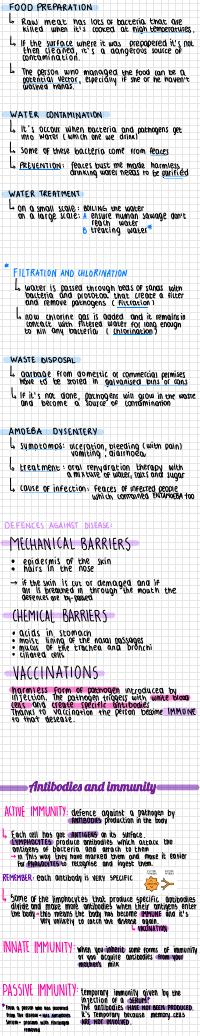 FOOD PREPARATION
Raw meat has lots of bacteria that are
killed when it's cooked at high temperatures.
If the surface where it was prepapered it's not
then cleaned, it's a dangerous source of
contamination.
The person who managed the food can be a
potential vector, especially if she or he haven't
washed hands.
WATER CONTAMINATION
It's occur when bacteria and pathogens get
into water (which one we drink)
Some of these bacteria come from feaces
PREVENTION: feaces must me made harmless,
drinking water needs to be purified
WATER TREATMENT
on a small scale: BOILING the water
on a large scale: A ensure human sewage don't
reach water
B treating water*
* FILTRATION AND CHLORINATION
water is passed through beds of sands with
bacteria and protozoa that create a filter
and remove pathogens (filtration)
now chlorine gas is added and it remains in
contact with filtered water for long enough
to kill any bacteria (chlorination)
WASTE DISPOSAL
Garbage from domestic or commercial permises
have to be stored in galvanised bins or cans
If it's not done, pathogens will grow in the waste
and become a source of contamination
AMOEBA DYSENTERY
symptomps: ulceration, bleeding (with pain)
vomiting, diarrhoea,
treatment: oral rehydration therapy with
a mixture of water, salts and sugar
cause of infection: feaces of infected people
which contained ENTAMOEBA too
DEFENCES AGAINST DISEASE:
MECHANICAL BARRIERS
• epidermis of the skin
• hairs in the nose
→ if the skin is cut or damaged and if
air is breathed in through the mouth the
defences are by-passed
CHEMICAL BARRIERS
• acids in stomach
• moist lining of the nasal passages
• mucus of the trachea and bronchi
• ciliated cells
VACCINATIONS
harmless form of pathogen introduced by
injection. The pathogen triggers with white blood
cells and create specific antibodies
Thanks to vaccination the person become IMMUNE
to that desease.
Antibodies and immunity
ACTIVE IMMUNITY: defence against a pathogen by
ANTIBODIES production in the body
Each cell has got ANTIGENS on its surface.
LYMPHOCYTES produce antibodies which the
antigens of bacteria and attach to them
→ in this way they have marked them and make it easier
for PHAGOCYTES to recognise and ingest them.
REMEMBER: each antibody is very specific
Some of the lymphocytes that produce specific antibodies
divide and make more antibodies when their antigens enter
the body → this means the body has become IMMUNE and it's
very unlikely to catch the disease again
VACCINATION
INNATE IMMUNITY: when you inherit some forms of immunity
or you acquire antibodies from your
mother's milk
PASSIVE IMMUNITY: temporary immunity given by the
injection of a SERUM*
The antibodies HAVE NOT BEEN PRODUCED.
It's temporary because memory cells
ARE NOT INVOLVED.